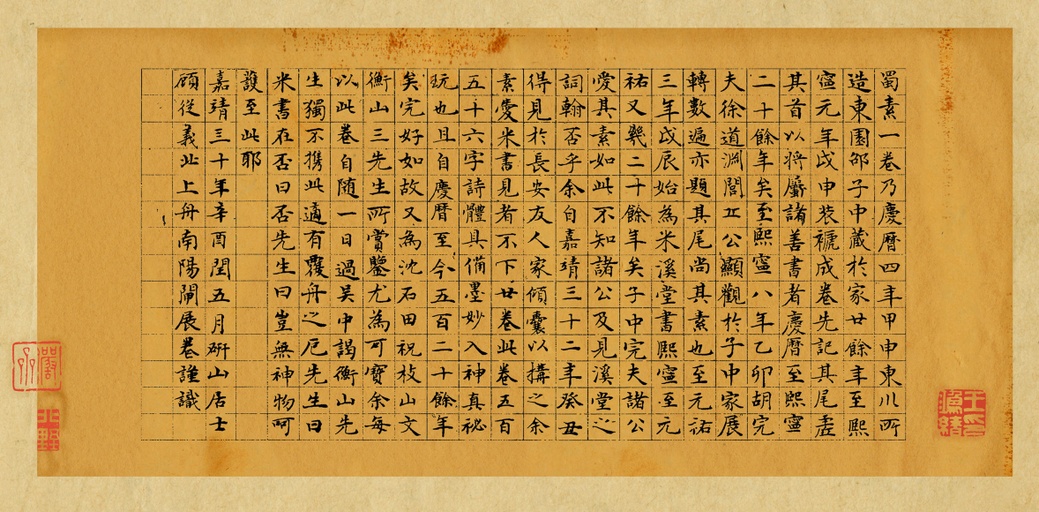 蜀素一卷乃慶曆四年甲申東川所
造東園邵子中藏於家廿餘年至熙
寧元年戊申装褫成卷先記其尾虛
其首以將屬諸善書者慶曆至熙寧
二十餘年矣至熙寧八年乙卯胡完
夫徐道淵閭丘公顯觀於子中家展
轉數遍亦題其尾尚其素也至元祐
三年戊辰始為米溪堂書熙寧至元
祐又幾二十餘年矣子中完夫諸公
愛其素如此不知諸公及見溪堂之
詞翰否乎余自嘉靖三十二年癸丑
得見於長安友人家傾囊以搆之余
素愛米書見者不下廿卷此卷五百
五十六字詩體具備墨妙入神真祕
玩也且自慶曆至今五百二十餘年
矣完好如故又為沈石田祝枝山文
衡山三先生所賞鑒尤為可寶余每
以此卷自随一日過吴中謁衡山先
生獨不携此適有覆舟之厄先生曰
米書在否曰否先生曰豈無神物呵
護至此耶
嘉靖三十年辛酉閏五月研山居士
顧從義北上舟南陽閘展卷謹識